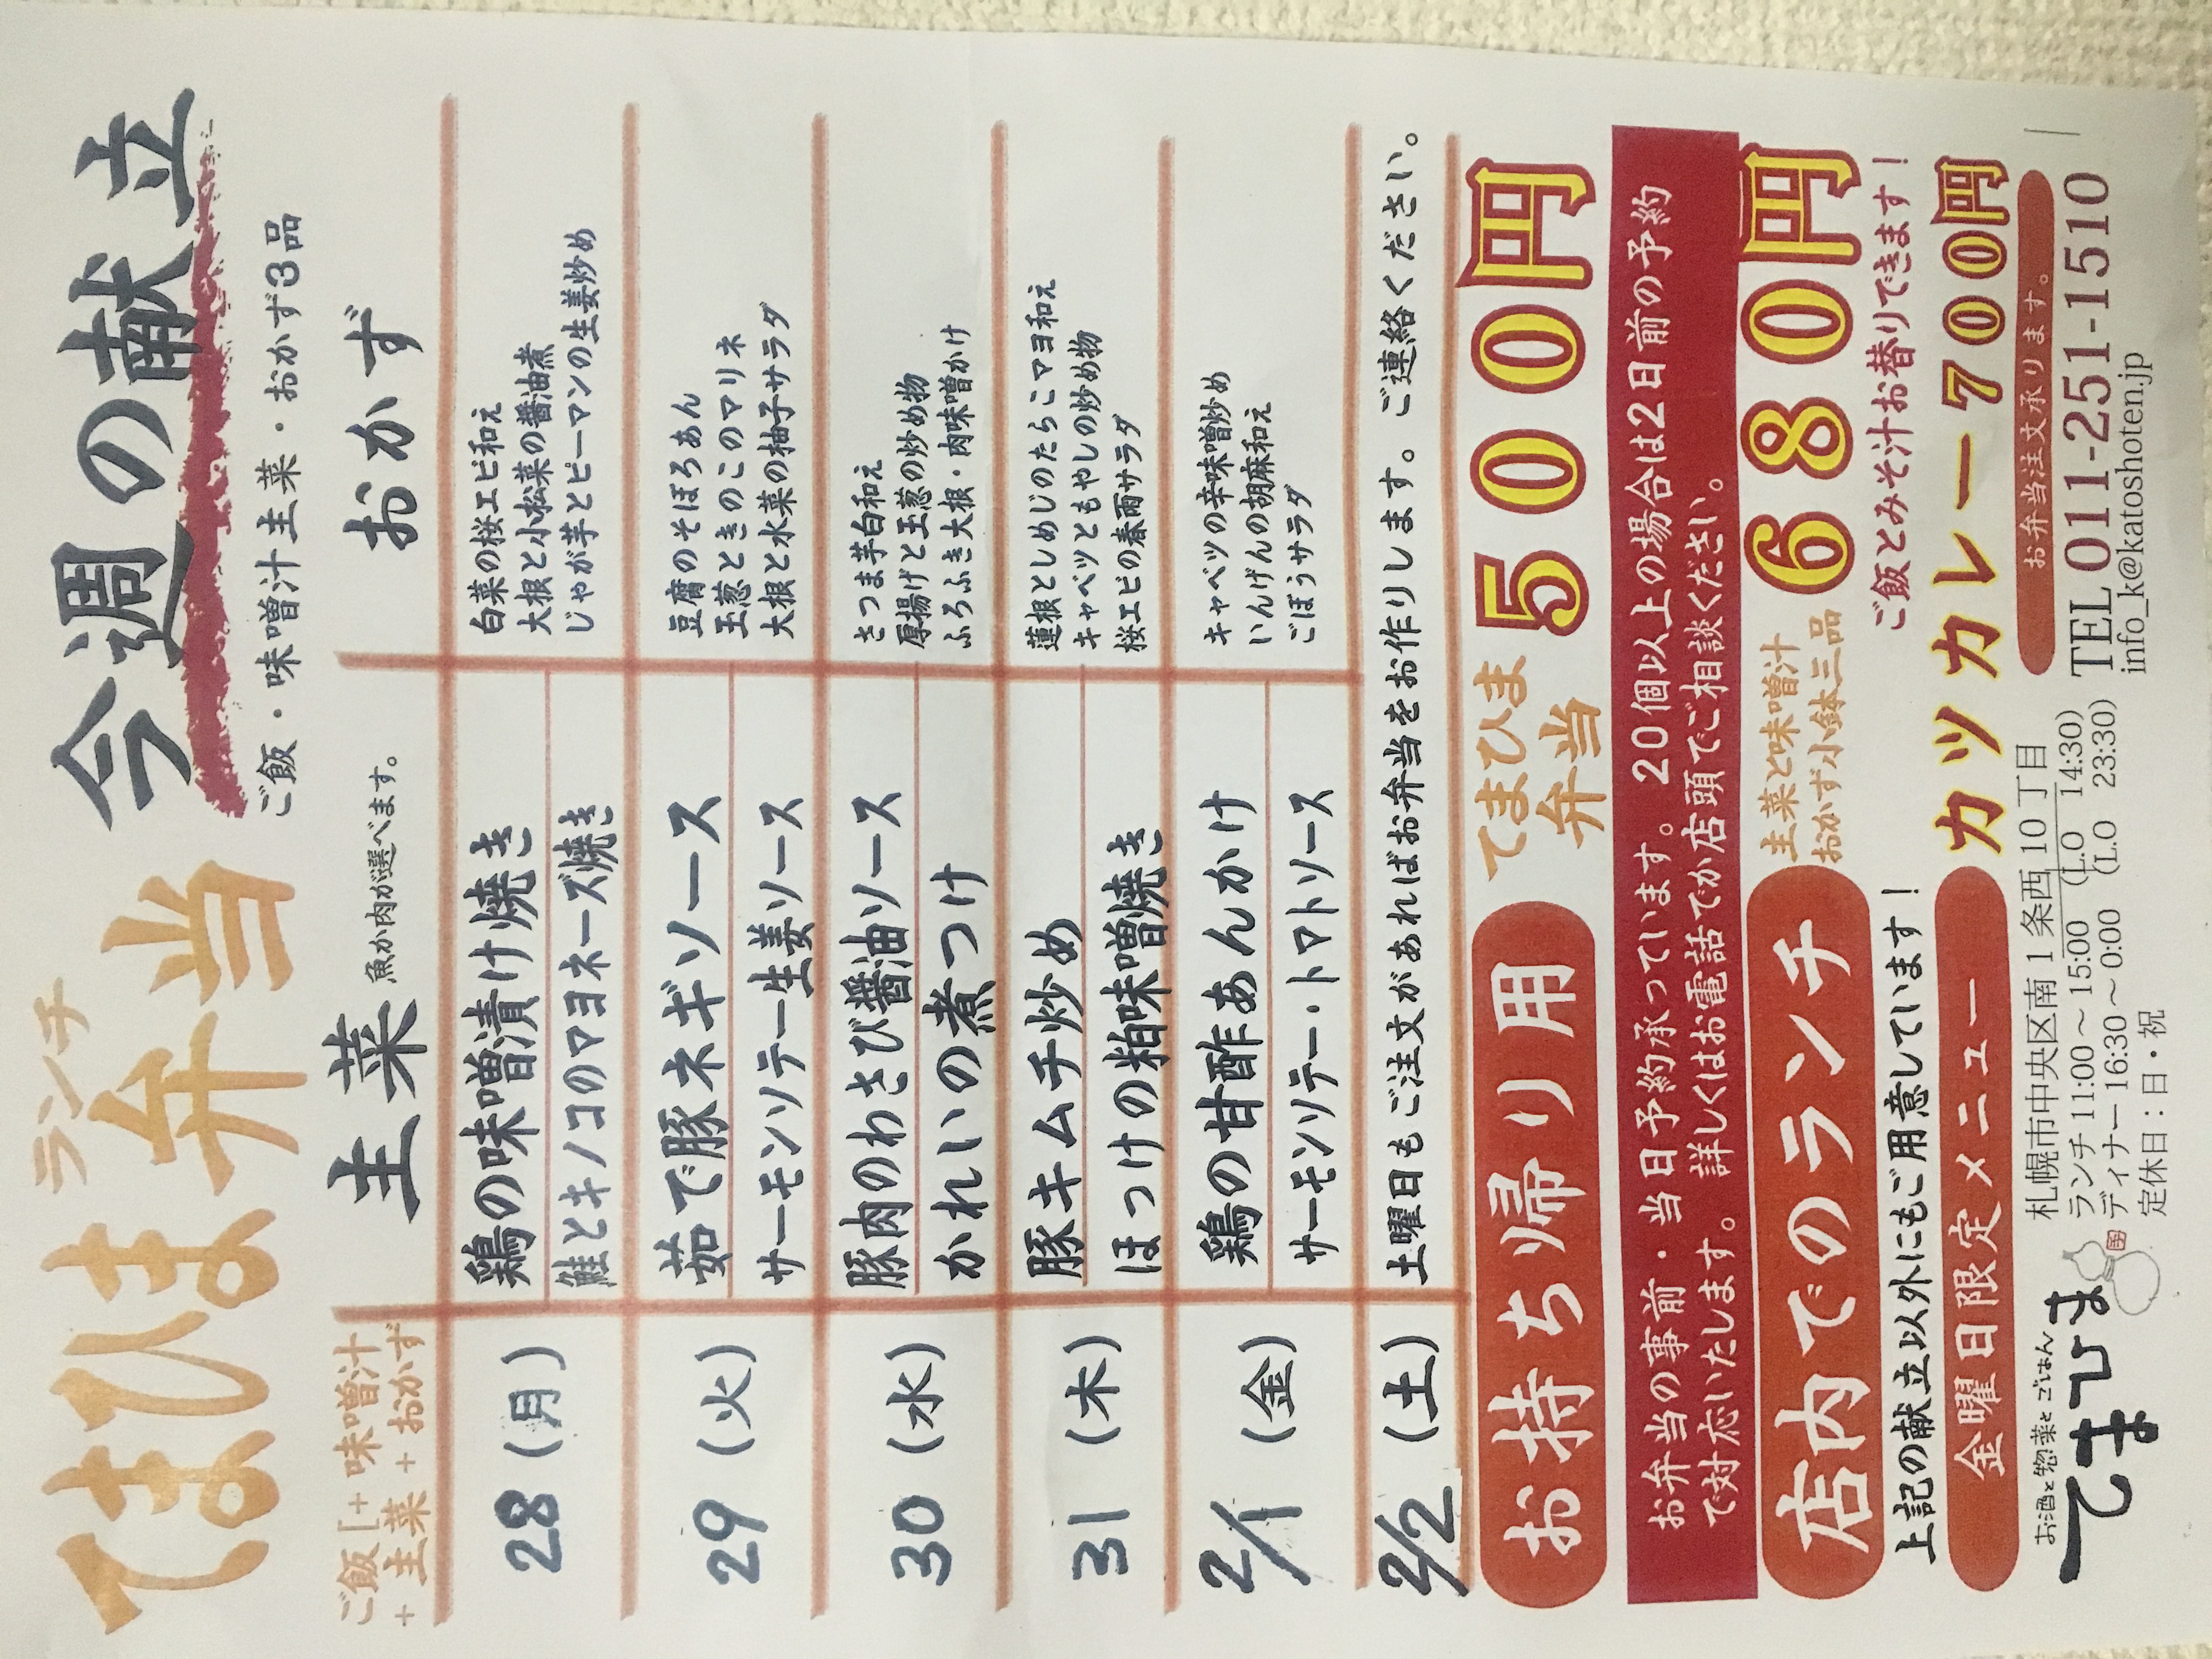 ランチ
てまひま弁当
今週の献立
ご飯・味噌汁主菜・おかず3品
ご飯[+味噌汁
+主菜+おかず
主菜 魚か肉が選べます。
おかず
28(月)
鶏の味噌漬け焼き
鮭とキノコのマヨネーズ焼き
白菜の桜エビ和え
大根と小松菜の醤油煮
じゃが芋とピーマンの生姜炒め
29(火)
茹で豚ネギソース
サーモンソテー生姜ソース
豆腐のそぼろあん
玉葱ときのこのマリネ
大根と水菜の柚子サラダ
30(水)
豚肉のわさび醤油ソース
かれいの煮つけ
さつま芋白和え
厚揚げと玉葱の炒め物
ふろふき大根・肉味噌かけ
31(木)
豚キムチ炒め
ほっけの粕味噌焼き
蓮根としめじのたらこマヨ和え
キャベツともやしの炒め物
桜エビの春雨サラダ
2/1(金)
鶏の甘酢あんかけ
サーモンソテー・トマトソース
キャベツの辛味噌炒め
いんげんの胡麻和え
ごぼうサラダ
2/2(土)
土曜日もご注文があればお弁当をお作りします。ご連絡ください。
お持ち帰り用
てまひま
弁当
500円
お弁当の事前・当日予約承っています。20個以上の場合は2日前の予約
で対応いたします。詳しくはお電話でか店頭でご相談ください。
店内でのランチ
主菜と味噌汁
おかず小鉢三品
680円
上記の献立以外にもご用意しています!
ご飯とみそ汁お替りできます!
金曜日限定メニュー
カツカレー700円
お酒と惣菜とごはん
てまひま
札幌市中央区南1条西10丁目
ランチ 11:00~15:00 (L.O 14:30)
ディナー 16:30~0:00 (L.O 23:30)
定休日:日・祝
お弁当注文承ります。
TEL 011-251-1510
info_k@katoshoten.jp